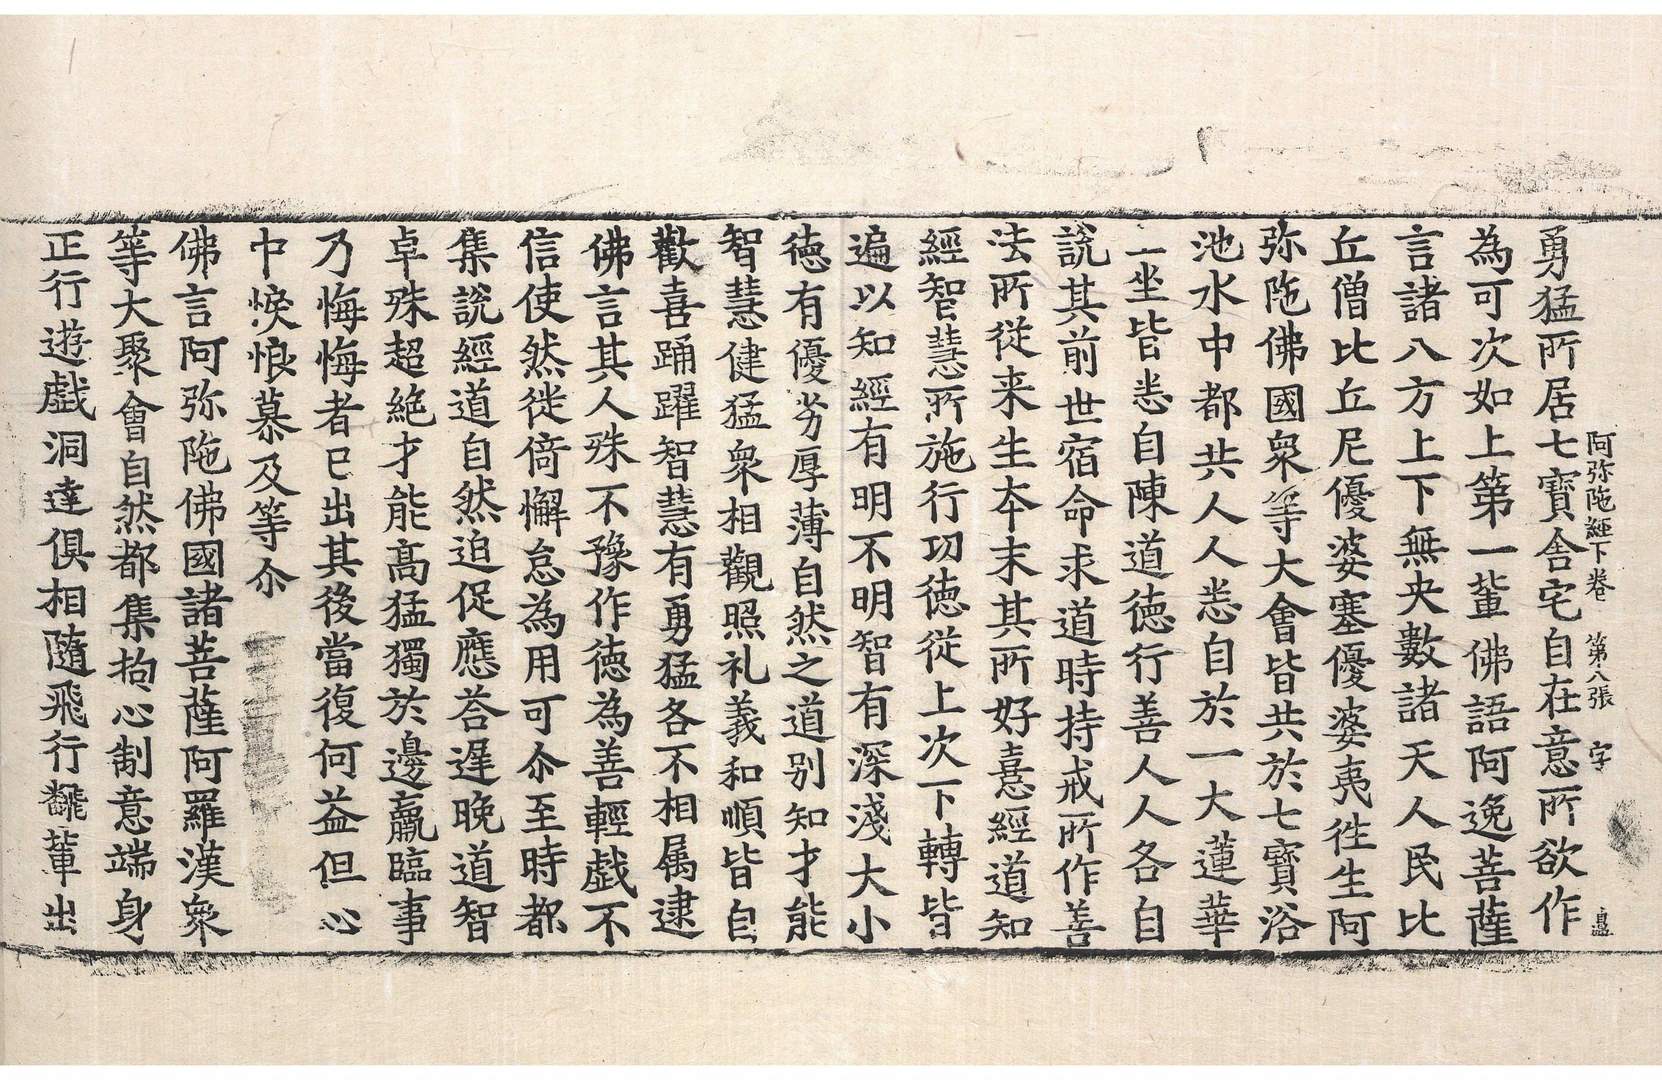 阿弥陁經下卷 第八張 字
勇猛所居七寶舍宅自在意所欲作
為可次如上第一輩佛語阿逸菩薩
言諸八方上下無央數諸天人民比
丘僧比丘尼優婆塞優婆夷徃生阿
弥陁佛國衆等大會皆共於七寶浴
池水中都共人人悉自於一大蓮華
上坐皆悉自陳道德行善人人各自
說其前世宿命求道時持戒所作善
法所從来生本末其所好憙經道知
經智慧所施行功德從上次下轉皆
遍以知經有明不明智有深淺大小
德有優劣厚薄自然之道別知才能
智慧健猛衆相觀照礼義和順皆自
歡喜踊躍智慧有勇猛各不相属逮
佛言其人殊不豫作德為善輕戲不
信使然徙倚懈怠為用可尒至時都
集說經道自然迫促應荅遲晚道智
卓殊超絶才能髙猛獨於邊羸臨事
乃悔悔者巳出其後當復何益但心
中悷悢慕及等尒
佛言阿弥陁佛國諸菩薩阿羅漢衆
等大聚會自然都集拘心制意端身
正行遊戲洞達俱相隨飛行翻輩出